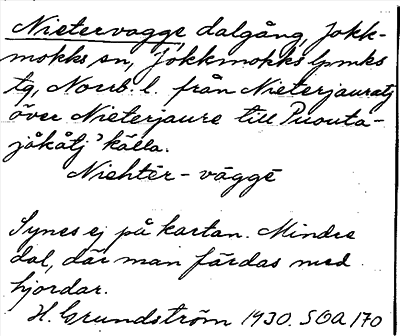 Nietervagge dalgång, Jokk-
mokks sn, Jokkmokks lpmks
tg, Norrb. l. från Nieterjauratj
över Nieterjaure till Puouta-
jåkåtj' källa.
Niehtēr-väggē
Synes ej på kartan. Mindre
dal, där man färdas med
hjordar.
H. Grundström 1930. SOA 170